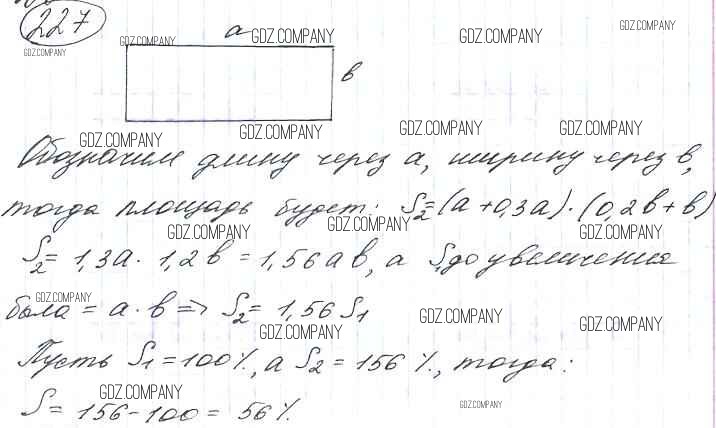 227
GDZ.COMPANY
a GDZ.COMPANY GDZ.COMPANY GDZ.COMPANY
GDZ.COMPANY
в
GDZ.COMPANY GDZ.COMPANY GDZ.COMPANY GDZ.COMPANY
Обозначим длину через a, ширину через в,
тогда площадь будет: S₂=(a+0,3a)·(0,2в+в)
GDZ.COMPANY GDZ.COMPANY GDZ.COMPANY
S₂= 1,3a · 1,2в = 1,56aв, а S₁ до увеличения
GDZ.COMPANY
была = a·в => S₂= 1,56 S₁
GDZ.COMPANY GDZ.COMPANY GDZ.COMPANY
Пусть S₁=100%, а S₂=156%, тогда:
GDZ.COMPANY
S= 156-100= 56%
GDZ.COMPANY